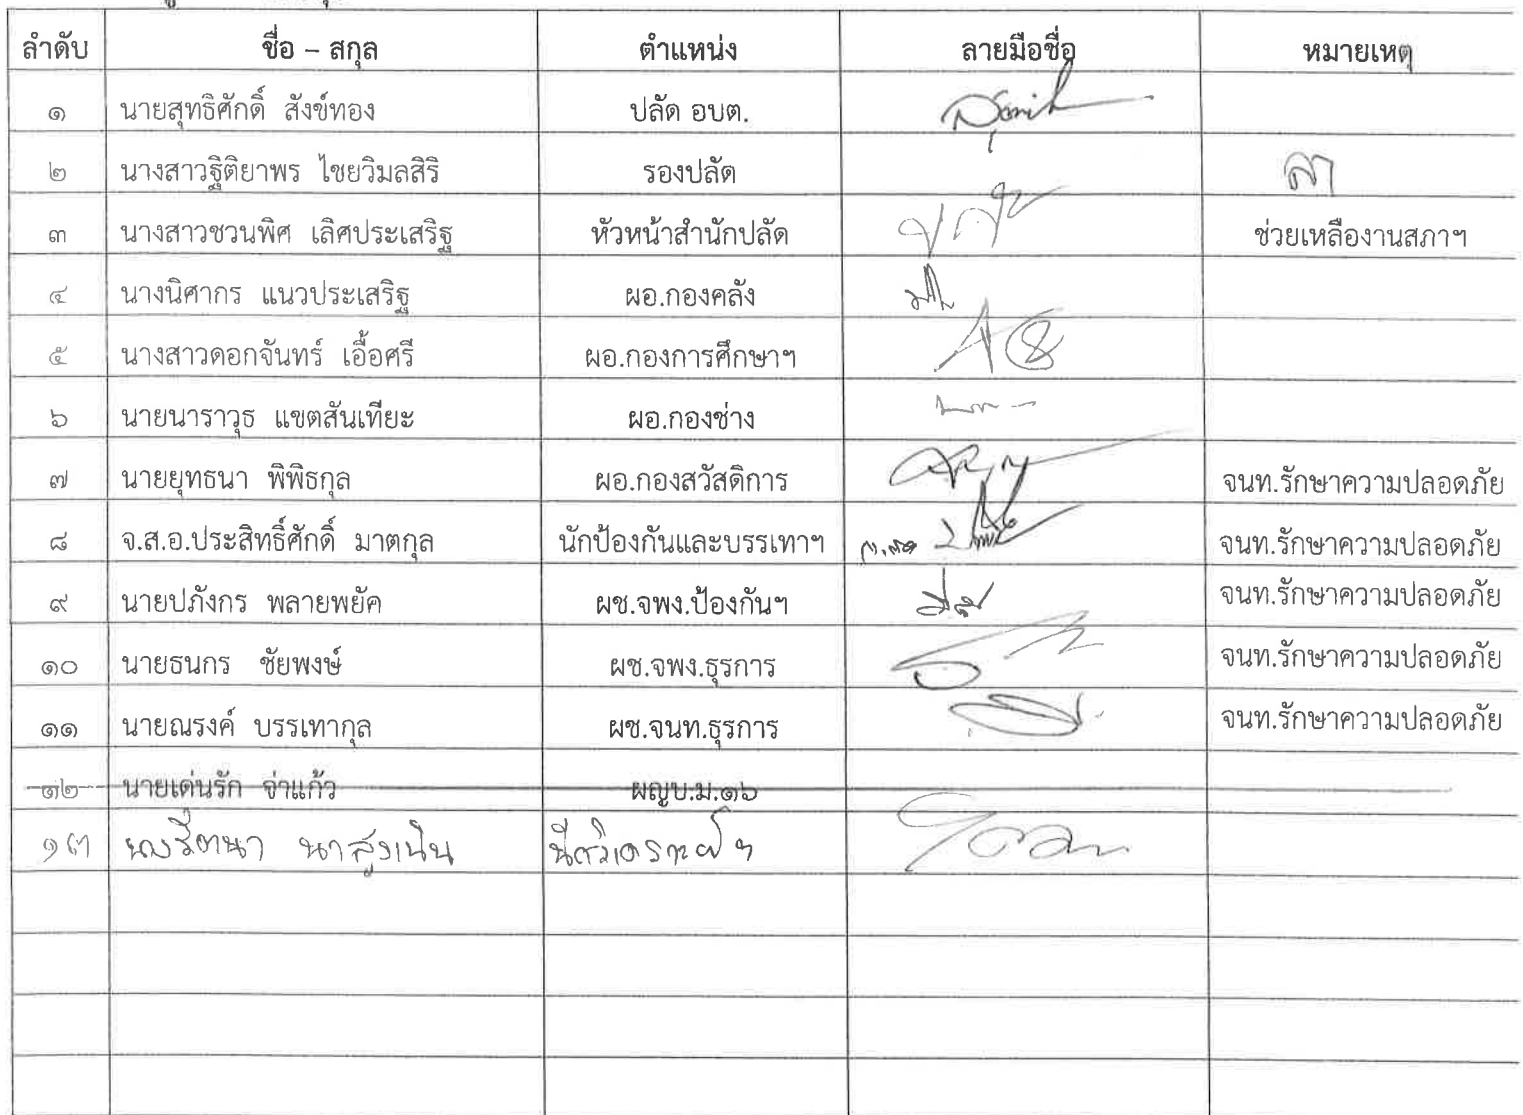 ลำดับ ชื่อ – สกุล ตำแหน่ง ลายมือชื่อ หมายเหตุ
๑ นายสุทธิศักดิ์ สังข์ทอง ปลัด อบต.
๒ นางสาวฐิติยาพร ไชยวิมลสิริ รองปลัด ลา
๓ นางสาวชวนพิศ เลิศประเสริฐ หัวหน้าสำนักปลัด ช่วยเหลืองานสภาฯ
๔ นางนิศากร แนวประเสริฐ ผอ.กองคลัง
๕ นางสาวดอกจันทร์ เอื้อศรี ผอ.กองการศึกษาฯ
๖ นายนาราวุธ แขตสันเทียะ ผอ.กองช่าง
๗ นายยุทธนา พิพิธกุล ผอ.กองสวัสดิการ จนท.รักษาความปลอดภัย
๘ จ.ส.อ.ประสิทธิ์ศักดิ์ มาตกุล นักป้องกันและบรรเทาฯ จนท.รักษาความปลอดภัย
๙ นายปภังกร พลายพยัค ผช.จพง.ป้องกันฯ จนท.รักษาความปลอดภัย
๑๐ นายธนกร ชัยพงษ์ ผช.จพง.ธุรการ จนท.รักษาความปลอดภัย
๑๑ นายณรงค์ บรรเทากุล ผช.จนท.ธุรการ จนท.รักษาความปลอดภัย
๑๒ นายเด่นรัก จ่าแก้ว ผญบ.ม.๑๖
๑๓ นางรัตนา นาสูงเนิน นักวิเคราะห์ฯ